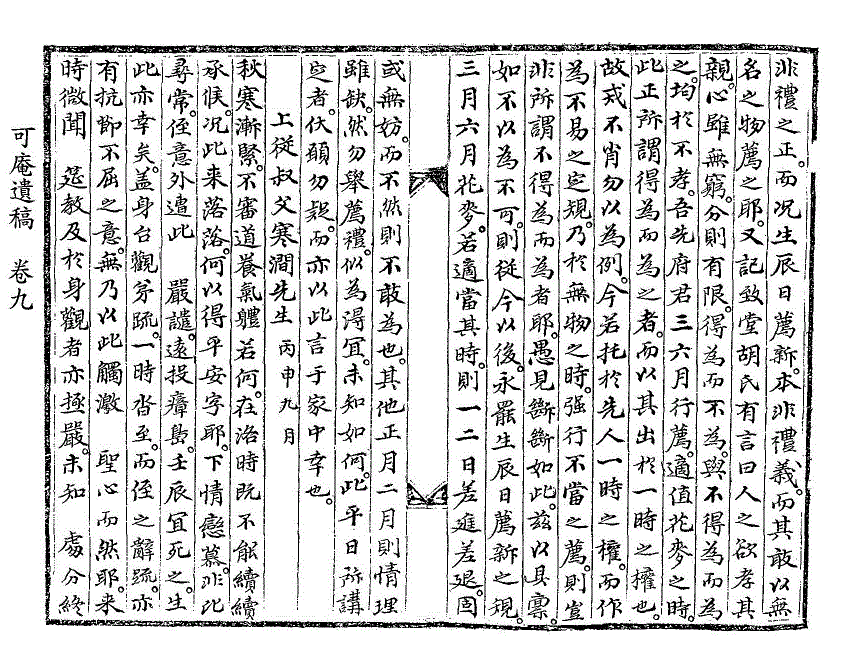 非禮之正。而况生辰日薦新。本非禮義。而其敢以無
名之物薦之耶。又記致堂胡氏有言曰人之欲孝其
親。心雖無窮。分則有限。得為而不為。與不得為而為
之。均於不孝。吾先府君三六月行薦。適值花麥之時。
此正所謂得為而為之者。而以其出於一時之權也。
故戒不肖勿以為例。今若托於先人一時之權。而作
為不易之定規。乃於無物之時。强行不當之薦。則豈
非所謂不得為而為者耶。愚見斷斷如此。玆以具禀。
如不以為不可。則從今以後。永罷生辰日薦新之規。
三月六月花麥。若適當其時。則一二日差進差退。固
或無妨。而不然則不敢為也。其他正月二月則情理
雖缺。然勿舉薦禮。似為得宜。未知如何。此平日所講
定者。伏願勿疑。而亦以此言于家中幸也。
上從叔父寒澗先生 丙申九月
秋寒漸緊。不審道養氣體若何。在洛時既不能續續
承候。况此来落落。何以得平安字耶。下情戀慕。非比
尋常。侄意外遭此 嚴譴。遠投瘴島。壬辰宜死之。生
此亦幸矣。盖身台觀芛疏。一時沓至。而侄之辭疏。亦
有抗節不屈之意。無乃以此觸激 聖心而然耶。来
時微聞 筵教及於身觀者亦極嚴。未知 處分終
可庵遺稿 卷九